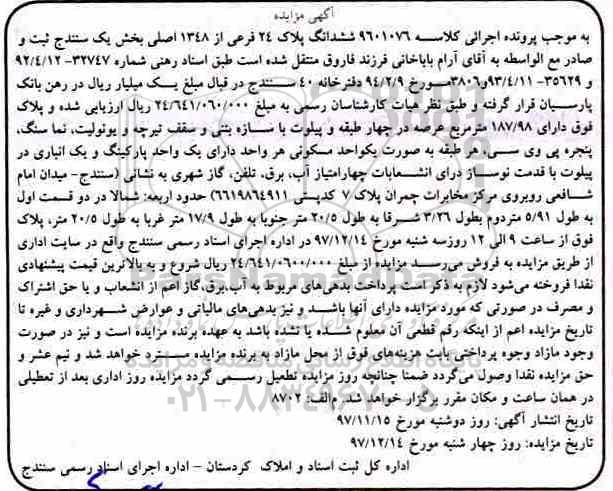 آگهی مزایده
به موجب پرونده اجرائی کلاسه ۹۶۰۱۰۷۶ ششدانگ پلاک ۲۴ فرعی از ۱۳۴۸ اصلی بخش یک سنندج ثبت و
صادر مع الواسطه به آقای آرام باباخانی فرزند فاروق منتقل شده است طبق اسناد رهنی شماره ۳۲۷۴۷- ۹۲/۴/۱۲
و ۳۵۶۲۹- ۹۳/۴/۱۱و۳۸۰۶مورخ ۹۴/۲/۹ دفترخانه ۴۰ سنندج در قبال مبلغ یک میلیار ریال در رهن بانک
پارسیان قرار گرفته و طبق نظر هیات کارشناسان رسمی به مبلغ ۲۴/۶۴۱/۰۶۰/۰۰۰ ریال ارزیابی شده و پلاک
فوق دارای ۱۸۷/۹۸ مترمربع عرصه در چهار طبقه و پیلوت با سازه بتنی و سقف تیرچه و یونولیت، نما سنگ،
پنجره پی وی سی، هر طبقه به صورت یکواحد مسکونی هر واحد دارای یک واحد پارکینگ و یک انباری در
پیلوت با قدمت نوساز درای انشعابات چهارامتیاز آب، برق، تلفن، گاز شهری به نشانی (سنندج- میدان امام
شافعی روبروی مرکز مخابرات چمران پلاک ۷ کدپستی ۶۶۱۹۸۶۴۹۱۱) حدود اربعه: شمالا در دو قسمت اول
به طول ۵/۹۱ متردوم بطول ۳/۲۶ شرقا به طول ۲۰/۵ متر جنوبا به طول ۱۷/۹ متر غربا به طول ۲۰/۵ متر، پلاک
فوق از ساعت ۹ الی ۱۲ روزسه شنبه مورخ ۹۷/۱۲/۱۴ در اداره اجرای اسناد رسمی سنندج واقع در سایت اداری
از طریق مزایده به فروش می‌رسد مزایده از مبلغ ۲۴/۶۴۱/۰۶۰۰/۰۰۰ ریال شروع و به بالاترین قیمت پیشنهادی
نقدا فروخته می‌شود لازم به ذکر است پرداخت بدهی‌های مربوط به آب،برق،گاز اعم از انشعاب و یا حق اشتراک
و مصرف در صورتی که مورد مزایده دارای آنها باشد و نیز بدهی‌های مالیاتی و عوارض شهرداری و غیره تا
تاریخ مزایده اعم از اینکه رقم قطعی آن معلوم شده یا نشده باشد به عهده برنده مزایده است و نیز در صورت
وجود مازاد وجوه پرداختی بابت هزینه‌های فوق از محل مازاد به برنده مزایده مسترد خواهد شد و نیم عشر و
حق مزایده نقدا وصول می‌گردد ضمنا چنانچه روز مزایده تعطیل رسمی گردد مزایده روز اداری بعد از تعطیلی
در همان ساعت و مکان مقرر برگزار خواهد شد. م‌الف: ۸۷۰۲
تاریخ انتشار آگهی: روز دوشنبه مورخ ۹۷/۱۱/۱۵
تاریخ مزایده: روز چهار شنبه مورخ ۹۷/۱۲/۱۴
اداره کل ثبت اسناد و املاک کردستان – اداره اجرای اسناد رسمی سنندج